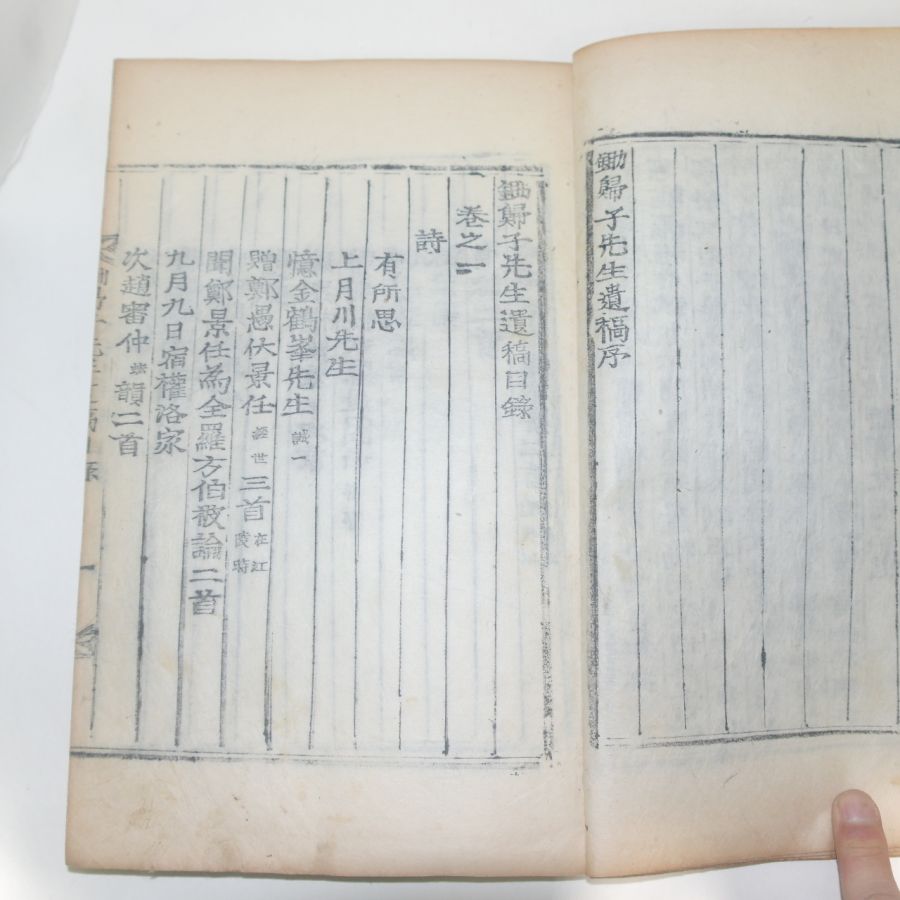 鋤歸子先生遺稿序
鋤歸子先生遺稿目錄
卷之一
詩
有所思
上月川先生
憶金鶴峯先生 誠一
贈鄭愚伏景任 經世 三首 在江陵時
聞鄭景任為全羅方伯敬論二首
九月九日宿權洛家
次趙審仲 韻二首